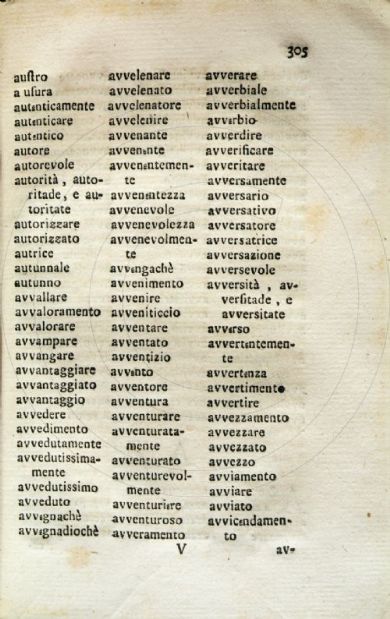 305
auſtro
a uſura
autenticamente
autenticare
autentico
autore
autorevole
autorità, auto-
ritade, e au-
toritate
autorizzare
autorizzato
autrice
autunnale
autunno
avvallare
avvaloramento
avvalorare
avvampare
avvangare
avvantaggiare
avvantaggiato
avvantaggio
avvedere
avvedimento
avvedutamente
avvedutissima-
mente
avvedutissimo
avveduto
avvegnachè
avvegnadiochè
avvelenare
avvelenato
avvelenatore
avvelenire
avvenante
avvenente
avvenentemen-
te
avvenentezza
avvenevole
avvenevolezza
avvenevolmen-
te
avvengachè
avvenimento
avvenire
avveniticcio
avventare
avventato
avventizio
avvento
avventore
avventura
avventurare
avventurata-
mente
avventurato
avventurevol-
mente
avventuriere
avventuroso
avveramento
avverare
avverbiale
avverbialmente
avverbio
avverdire
avverificare
avveritare
avversamente
avversario
avversativo
avversatore
avversatrice
avversazione
avversevole
avversità, av-
verſitade, e
avversitate
avverso
avvertentemen-
te
avvertenza
avvertimento
avvertire
avvezzamento
avvezzare
avvezzato
avvezzo
avviamento
avviare
avviato
avvicendamen-
to
V
av-